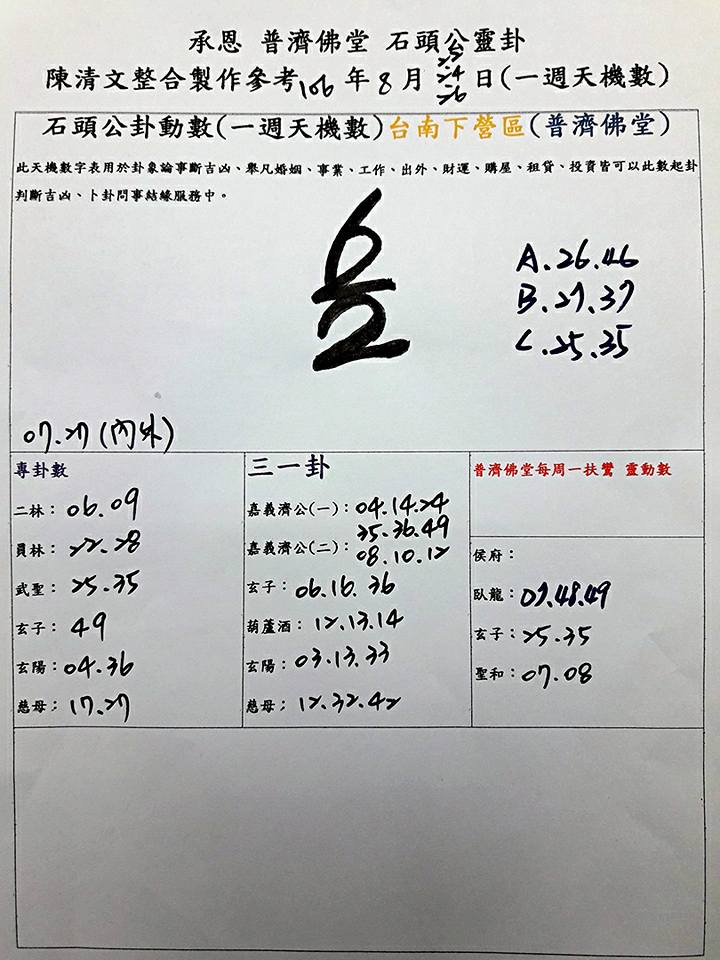 承恩 普濟佛堂 石頭公靈卦
陳清文整合製作參考106年8月22.24.26日(一週天機數)
石頭公卦動數(一週天機數)台南下營區(普濟佛堂)
此天機數字表用於卦象論事斷吉凶、舉凡婚姻、事業、工作、出外、財運、購屋、租貸、投資皆可以此數起卦
判斷吉凶、卜卦問事結緣服務中。
A.26.46
B.27.37
C.25.35
07.27(內外)
專卦數
二林：06.09
員林：22.28
武聖：25.35
玄子：49
玄陽：04.36
慈母：17.27
三一卦
嘉義濟公(一)：04.14.24
35.36.49
嘉義濟公(二)：08.10.12
玄子：06.16.36
葫蘆酒：12.13.14
玄陽：03.13.33
慈母：12.32.42
普濟佛堂每周一扶鸞 靈動數
侯府：
臥龍：07.48.49
玄子：25.35
聖和：07.08